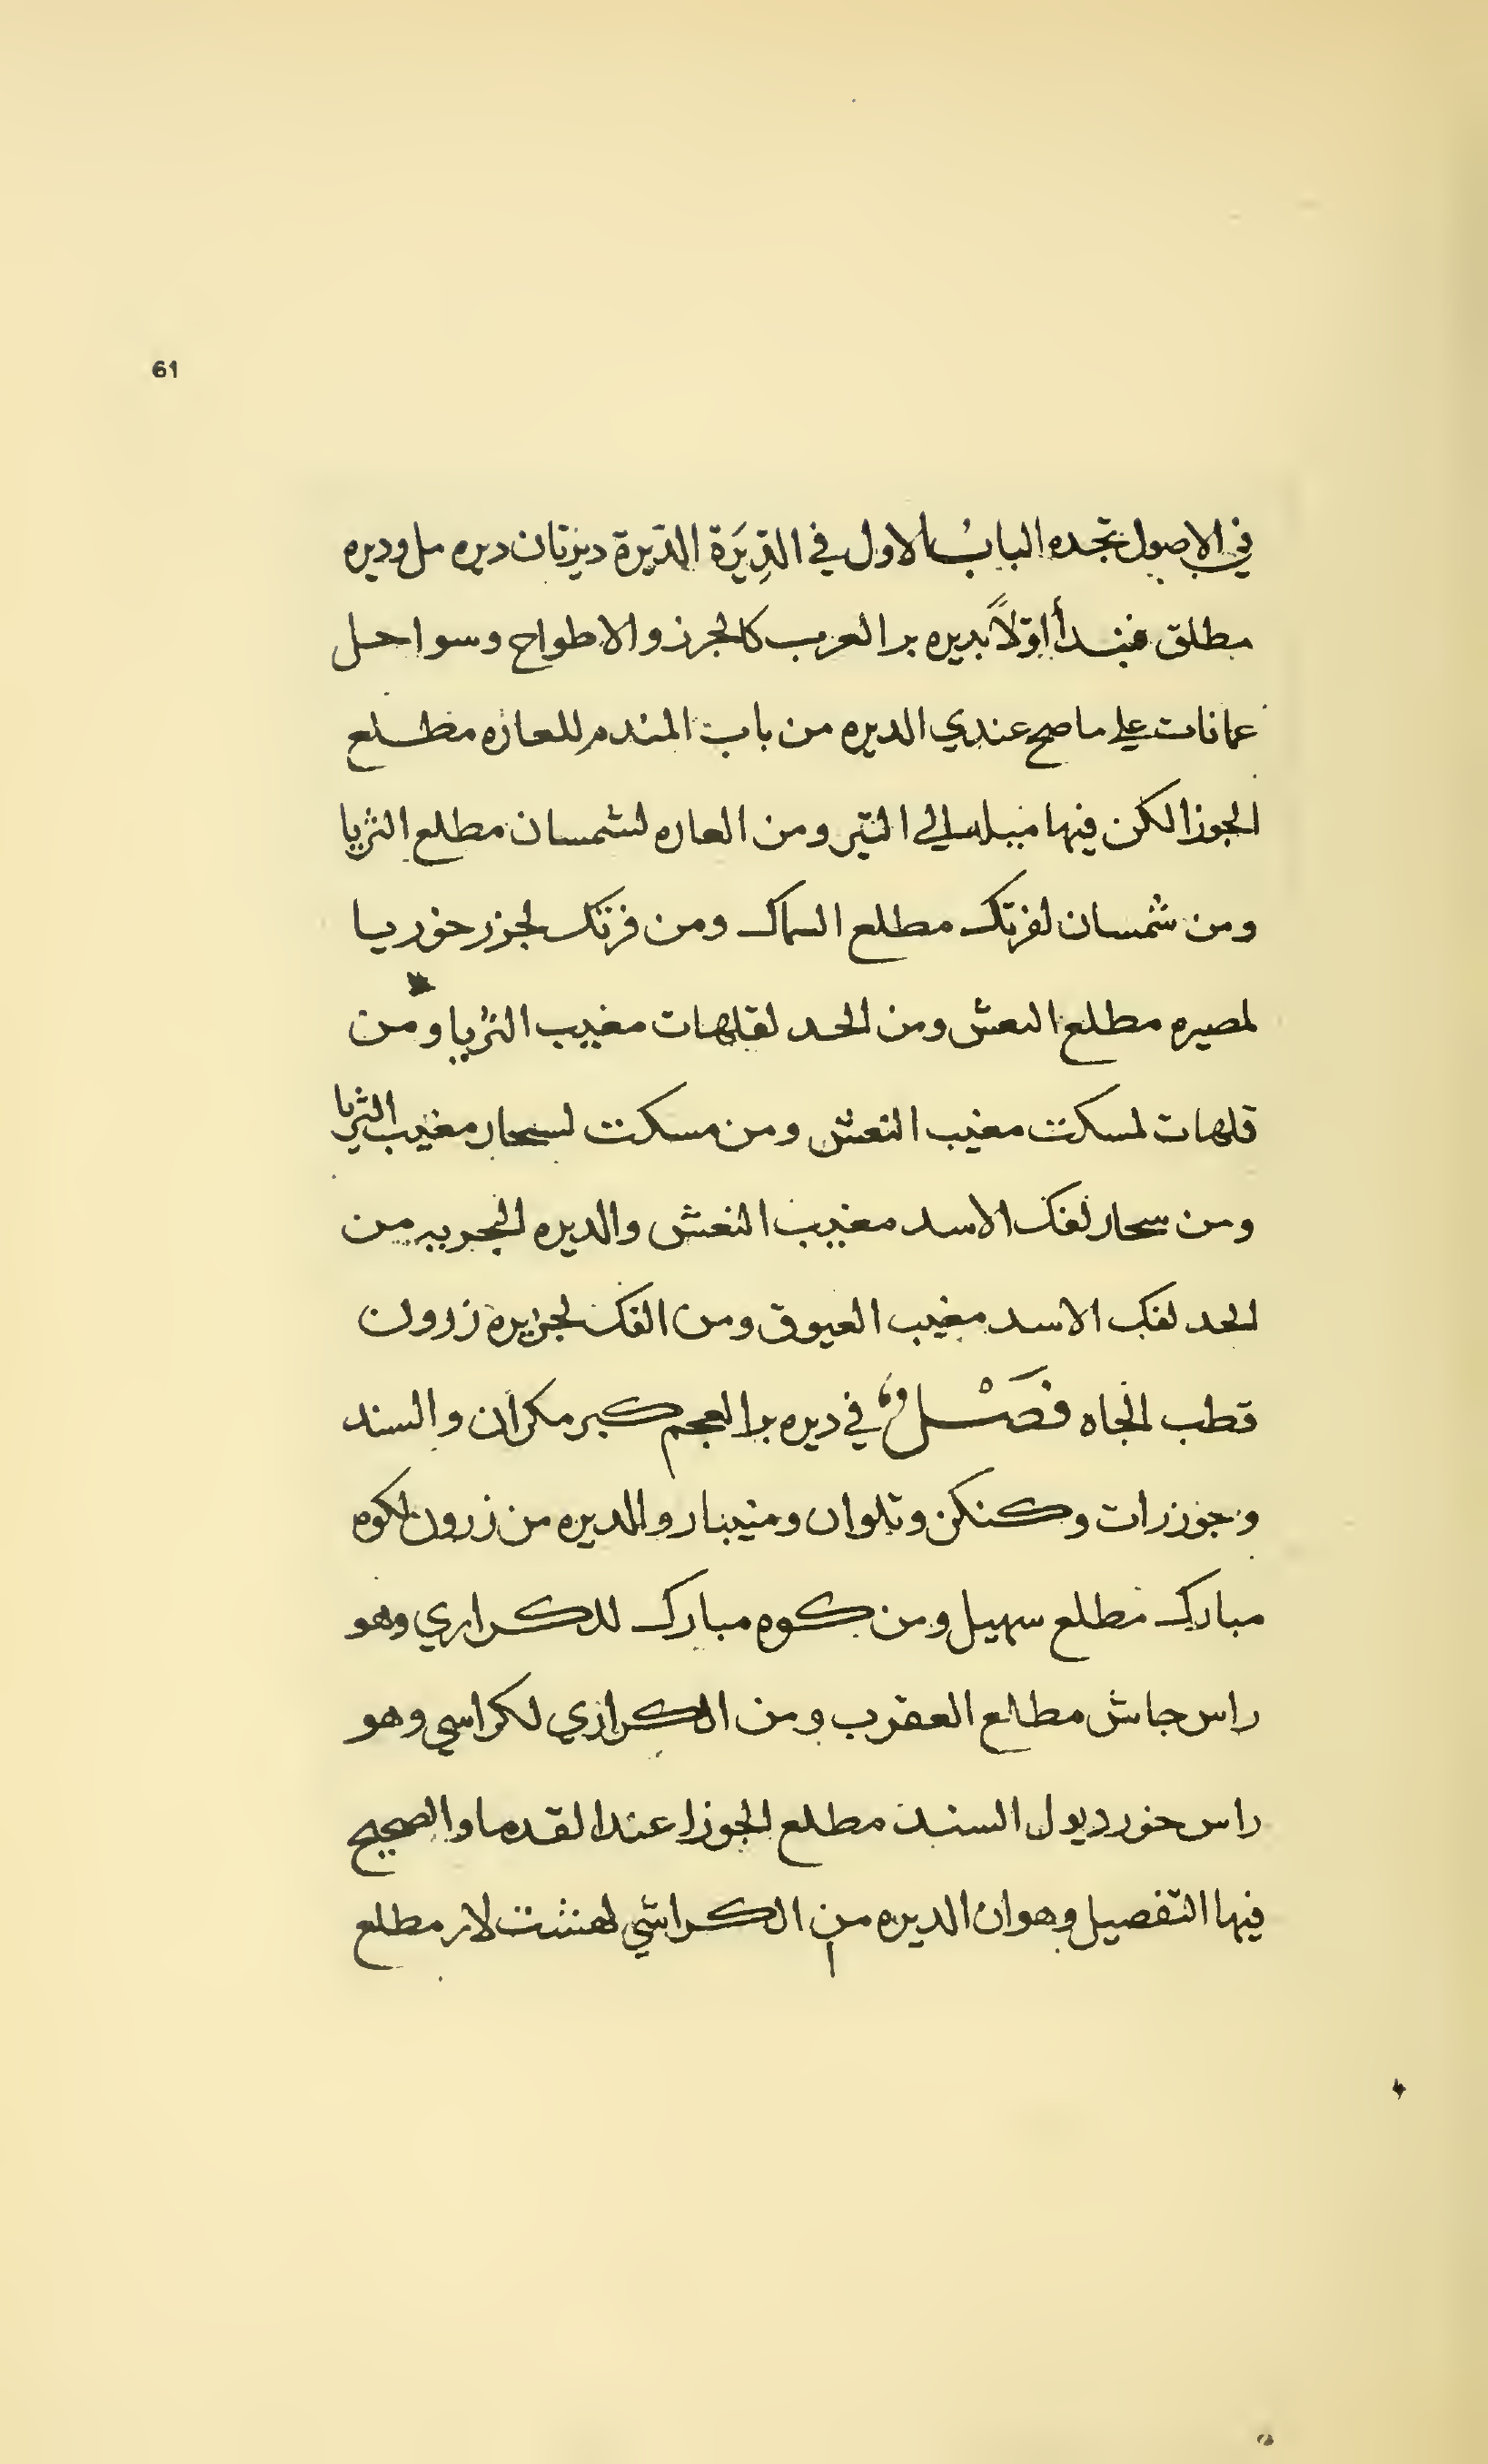 61
في الاصول تجده البابُ الاول في الدِّيَرة الدّيرة ديرتان ديره مل وديره
مطلق فنبدأ اوّلاً بديره بر العرب كالجرز والاطواح وسواحل
عمانات على ما صح عندي الديره من باب المندم للعاره مطلع
الجوزا لكن فيها ميله الي التير ومن العاره لشمسان مطلع الثريا
ومن شمسان لفرتك مطلع السماك ومن فرتك لجزر خوريا
لمصيره مطلع النعش ومن الحد لقلهات مغيب الثريا ومن
قلهات لمسكت مغيب النعش ومن مسكت لسحار مغيب الثريا
ومن سحار لفك الاسد مغيب النعش والديره البحريه من
الحد لفك الاسد مغيب العيوق ومن الفك لجزيره زرون
قطب الجاه فَصْل في ديره بر العجم كبر مكران والسند
وجوزرات وكنكن وتلوان ومنيبار والديره من زرون لكوه
مبارك مطلع سهيل ومن كوه مبارك للكراري وهو
راس جاش مطلع العقرب ومن الكرازي لكراسي وهو
راس خور ديول السند مطلع الجوزا عند القدما والصحيح
فيها التفصيل وهو ان الديره من الكراشي لهنشت لار مطلع